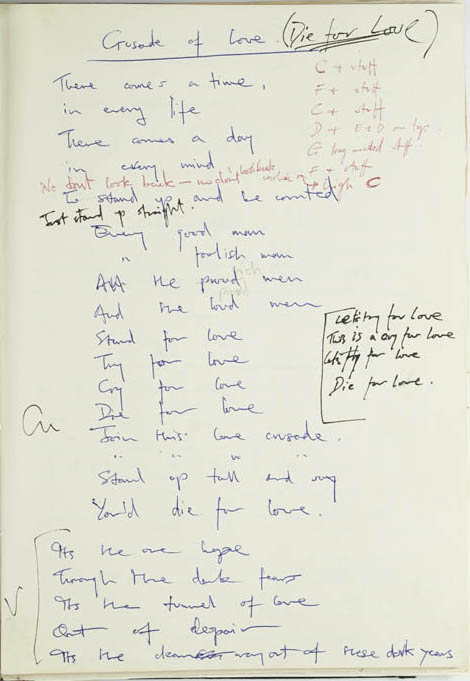 Crusade of Love. (Die for Love)
There comes a time,
in every life
There comes a day
in every mind
C + stuff
F + stuff
C + stuff
D + E & D on top
G long winded stuff
F + stuff
high C
We don't look back – look back
To stand up and be counted
Just stand up straight.
Every good man
" foolish man
All the proud men
rich
proud
And the loud men
Stand for love
Try for love
Cry for love
Die for love
Join this love crusade.
" " " "
Stand up tall and say
You'd die for love.
Let's try for love
This is a cry for love
Let's fly for love
Die for love.
It's the one hope
Through the dark fears
It's the tunnel of love
Out of despair
It's the clear way out of these dark years